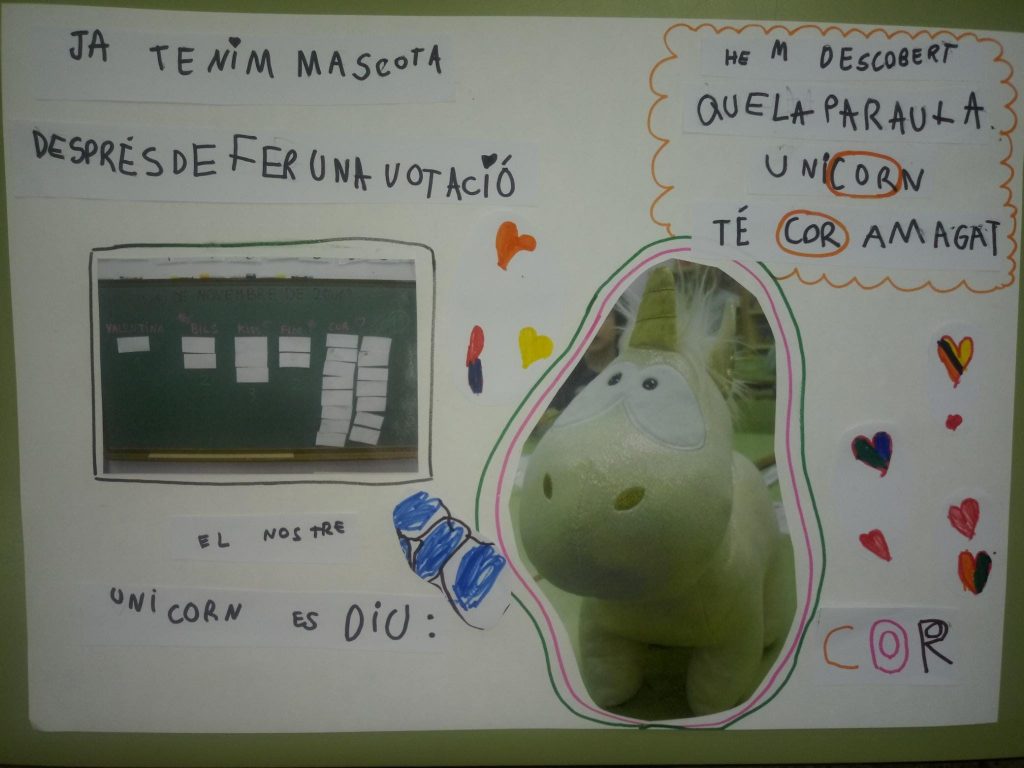 JA TENiM MASCOTA
DESPRÉS DE FER UNA VOTACiÓ
HE M DESCOBERT
QUE LA PARAULA
UNiCORN
TÉ COR AMAGAT
DE NOVEMBRE DE
VALENTINA BILS KISS FLOC COR
EL NOSTRE
UNiCORN ES DiU:
COR